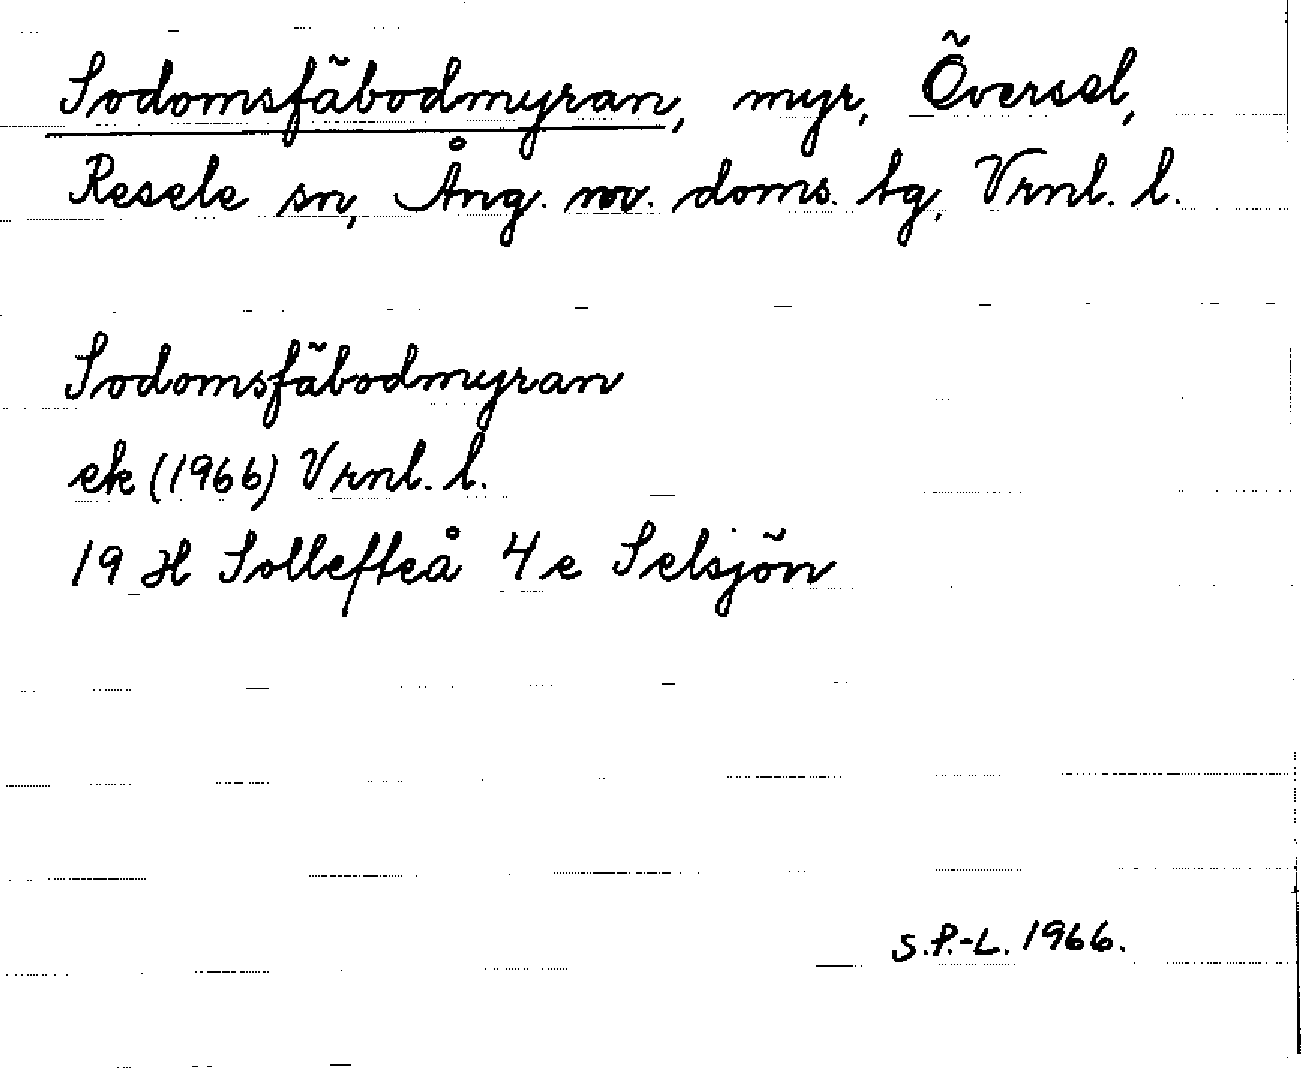 Sodomsfäbodmyran, myr, Översel,
Resele sn, Ång. nv. doms. tg, Vrnl. l.
Sodomsfäbodmyran
ek (1966) Vrnl. l.
19 H Sollefteå 4 e Selsjön
S.P.-L. 1966.